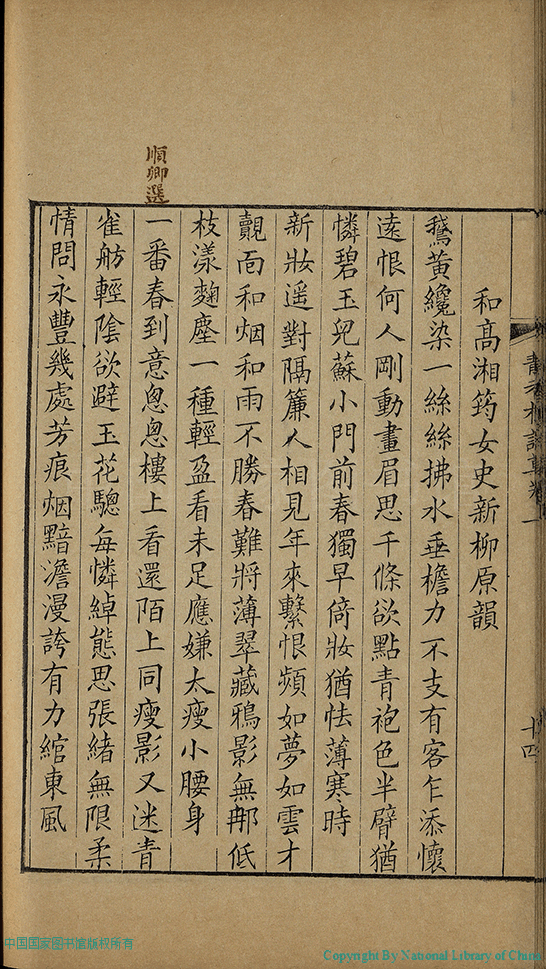 十四
和高湘筠女史新柳原韻
鵝黃纔染一絲絲拂水垂檐力不支有客乍添懷
遠恨何人剛動畫眉思千條欲點青袍色半臂猶
憐碧玉兒蘇小門前春獨早倚妝猶怯薄寒時
新妝遥對隔簾人相見年來繫恨頻如夢如雲才
覿面和烟和雨不勝春難將薄翠藏鴉影無那低
枝漾麴塵一種輕盈看未足應嫌太瘦小腰身
順卿選
一番春到意怱怱樓上看還陌上同瘦影又迷青
雀舫輕陰欲避玉花驄每憐綽態思張緒無限柔
情問永豐幾處芳痕烟黯澹漫誇有力綰東風
中国国家图书馆版权所有
Copyright By National Library of China